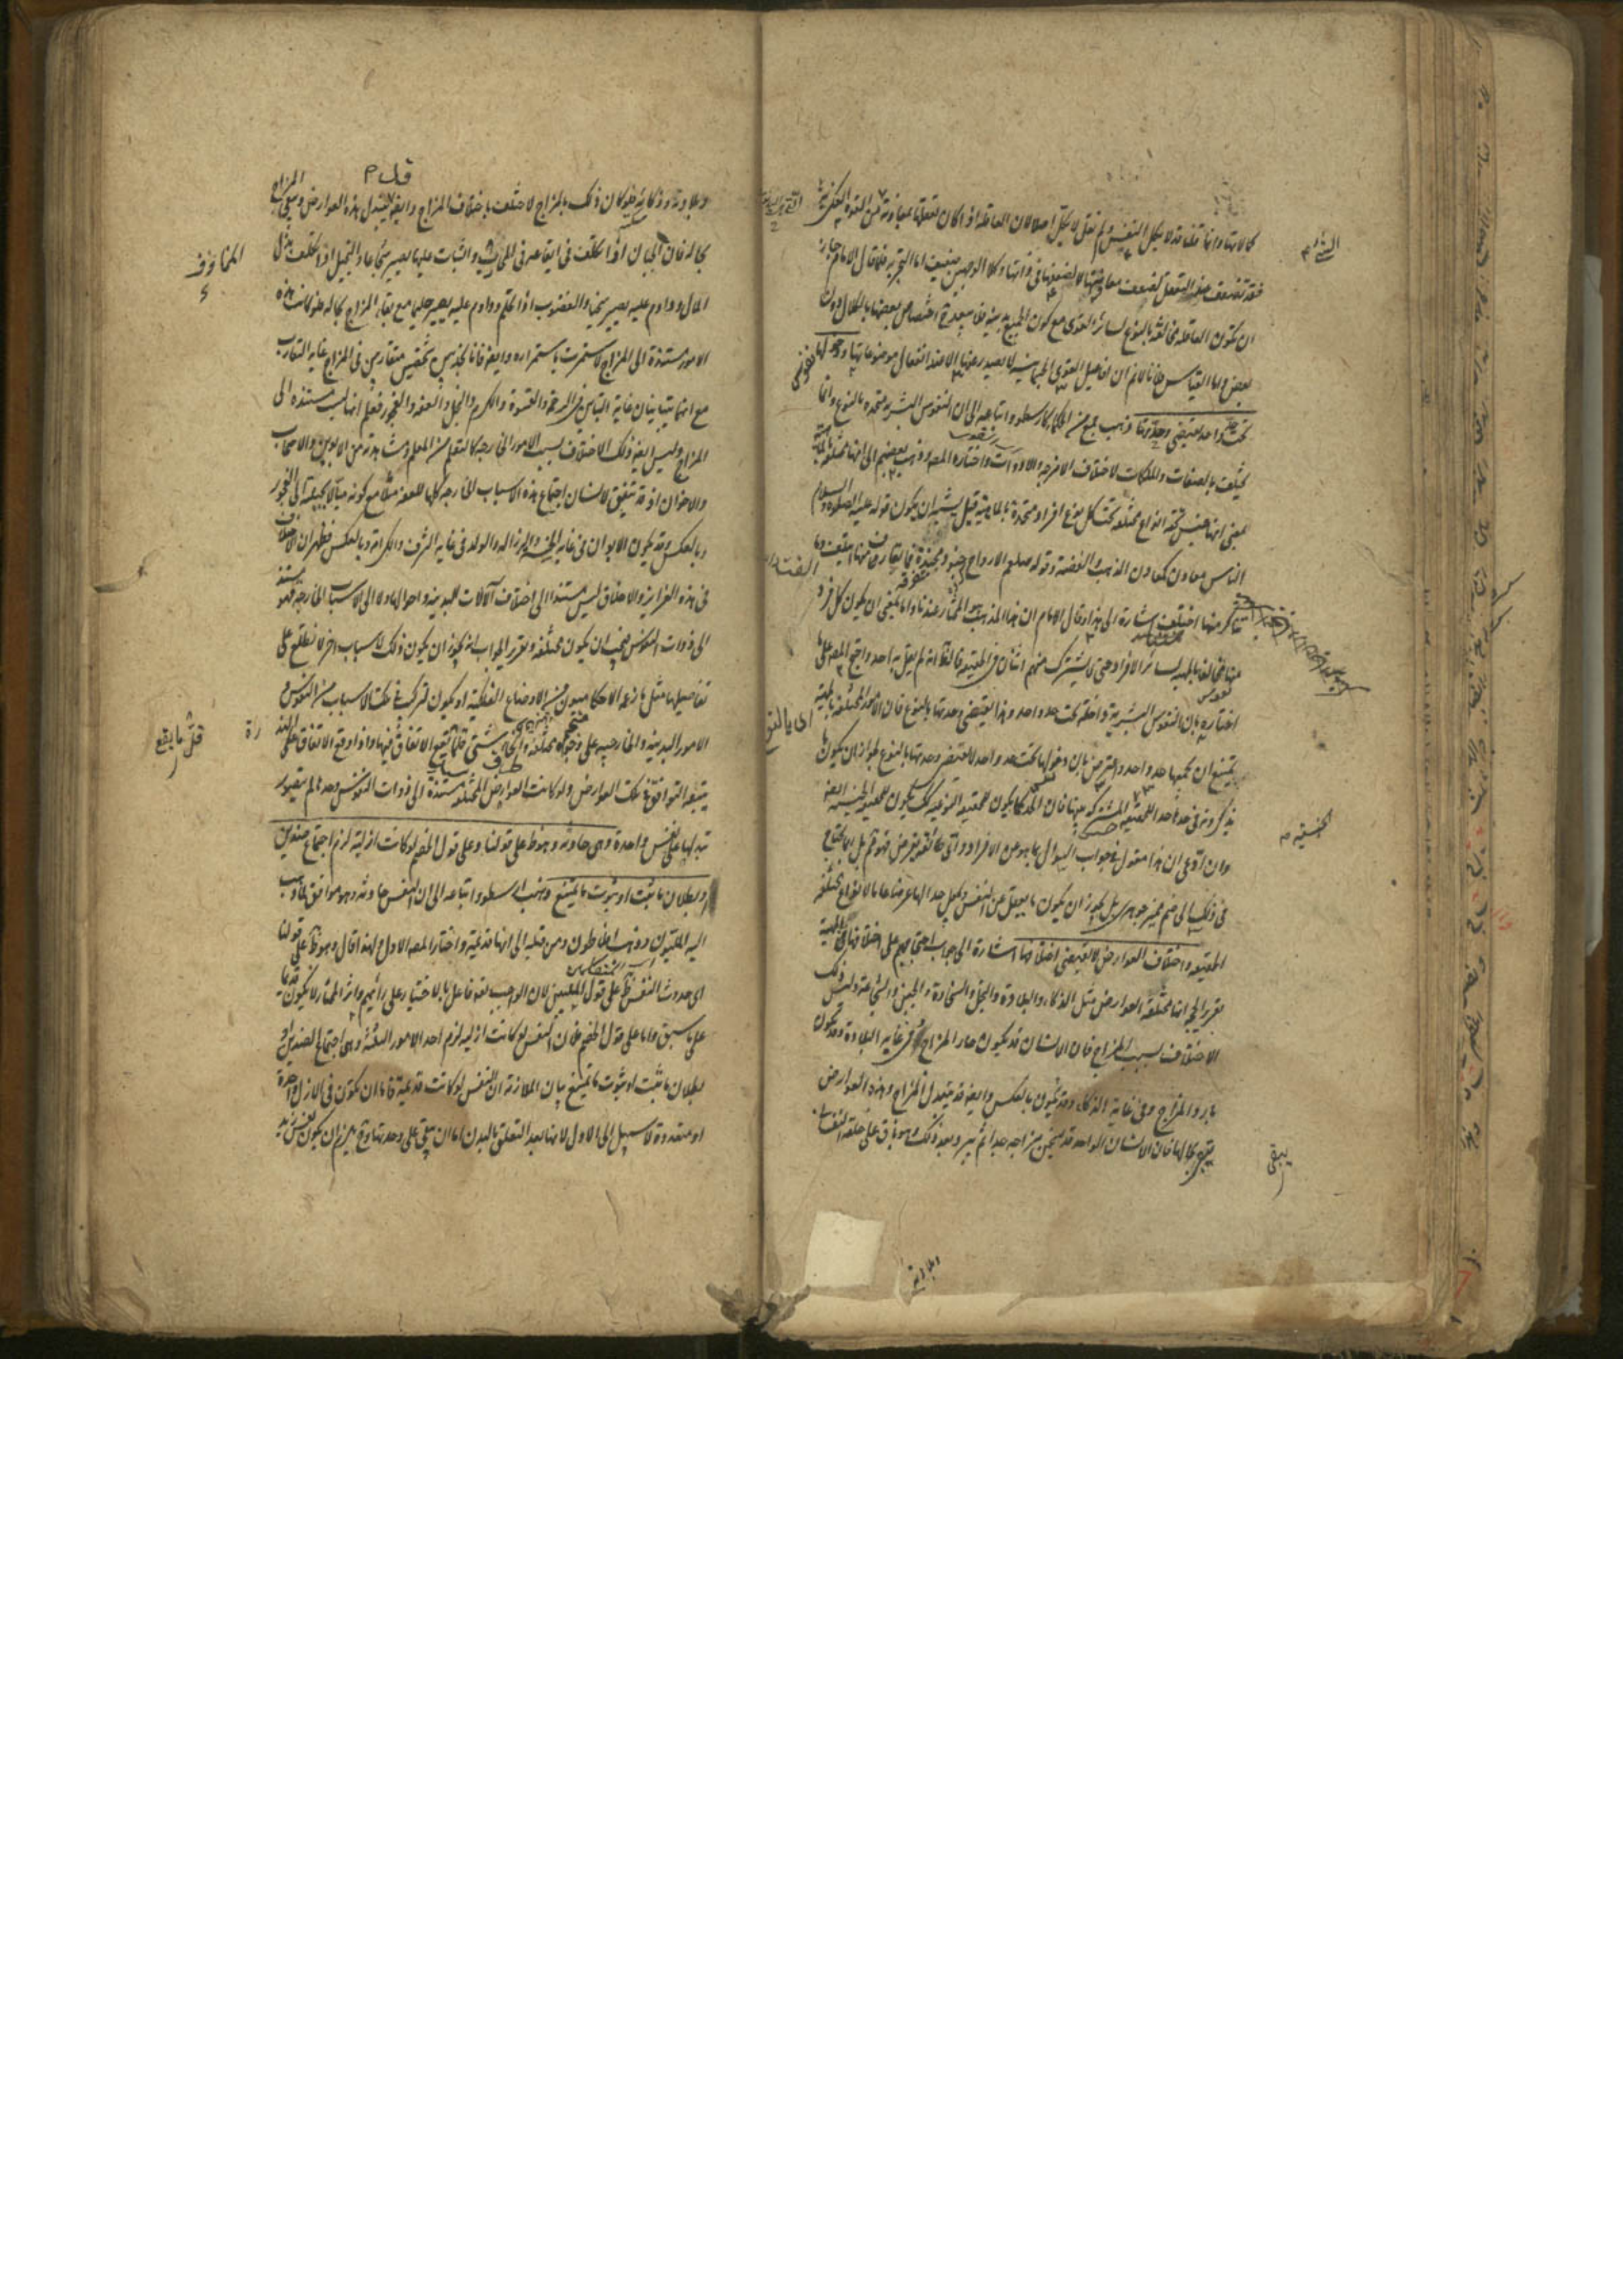 كالاتها وانما قلنا قد لا يكل النفس ولم نقل لا يكل اصلا لان العاقلة اذا كان تعقلها بمعاونة من القوة الفكرية
فقد تضعف عن التعقل لضعف معاونتها لا لضعفها في ذاتها وكلا الوجهين ضعيف اما التجربة فلما قال الامام جاز
ان تكون العاقلة مخالفة بالنوع لسائر القوى مع كون الجميع بدنية فلا يبعد اختصاص بعضها بالكلال دون
بعض واما القياس فلانا لا نم ان افاعيل القوى الجسمانية لا يصدر عنها الا عند انفعال موضوعاتها ودخولها
تحت حد واحد يقتضي وحدتها ذهب جمع من الحكماء كارسطو واتباعه الى ان النفوس البشرية متحدة بالنوع وانما
تختلف بالصفات والملكات لاختلاف الامزجة والادوات واختاره المصه وذهب بعضهم الى انها مختلفة بالماهية
بمعنى انها جنس تحته انواع مختلفة تحت كل نوع افراد متحدة بالماهية قيل يشبه ان يكون قوله عليه الصلوة والسلام
الناس معادن كمعادن الذهب والفضة وقوله صلعم الارواح جنود مجندة فما تعارف منها ائتلف وما
تناكر منها اختلف اشارة الى هذا وقال الامام ان هذا المذهب هو المختار عندنا واما بمعنى ان يكون كل فرد
منها مخالفا بالمهية لسائر الافراد حتى لا يشترك منهم اثنان في الحقيقة فالظ انه لم يقل به احد واحتج المصه على
اختياره بان النفوس البشرية داخلة تحت حد واحد وهذا يقتضي وحدتها بالنوع فان الامور المختلفة بالمهية
يمتنع ان يجمعها حد واحد واعترض بان دخولها تحت حد واحد لا يقتضي وحدتها بالنوع لجواز ان يكون ما
يذكرونه في حدها حدا للحقيقة المشتركة بينها فان الحد كما يكون للحقيقة النوعية كك يكون للحقيقة الجنسية ايضه
وان ادعى ان هذا مقول في جواب السؤال بما هو عن الافراد واي طائفة تفرض فهو مم بل ربما يحتاج
في ذلك الى ضم مميز جوهري بل يجوز ان يكون ما يعقل من النفس ويجعل حدا لها عرضا عاما لانواع مختلفة
الحقيقة واختلاف العوارض لا يقتضي اختلافها اشارة الى جواب احتجاجهم على اختلافها في المهية
تقرير الحجة انها مختلفة العوارض مثل الذكاء والبلادة والبخل والسخاوة والجبن والشجاعة وليس ذلك
الاختلاف بسبب المزاج فان الانسان قد يكون حار المزاج وفي غاية البلادة وقد يكون
بارد المزاج وفي غاية الذكاء وقد يكون بالعكس وايضه قد يتبدل المزاج وهذه العوارض
يبقى بحالها فان الانسان الواحد قد يسخن مزاجه جدا ثم يبرد بعد ذلك وهو باق على
الجنسية
يبقى
وبلادته
وبلادته وذكائه فلو كان ذلك بالمزاج لاختلف باختلاف المزاج وايضه قد يتبدل هذه العوارض ويبقى المزاج
بحاله فان الجبان اذا تكلف في ايقاعه في المخاوف والثبات عليها يصير شجاعا والبخيل اذا تكلف بذل
المال وداوم عليه يصير سخيا والغضوب اذا تحلم وداوم عليه يصير حليما مع بقاء المزاج بحاله فلو كانت هذه
الامور مستندة الى المزاج لاستمرت باستمراره وايضه فانا نجد شخصين متقاربين في المزاج غاية التقارب
مع انهما متباينان غاية التباين في الرحمة والقسوة والكرم والبخل والعفة والفجور فعلم انها ليست مستندة الى
المزاج وليس ايضه ذلك الاختلاف بسبب الامور الخارجة كالتعلم من المعلم ومشاهدته من الابوين والاصحاب
والاخوان اذ قد يتفق لانسان اجتماع هذه الاسباب الخارجة كلها للعفة مثلا مع كونه ميالا بجبلته الى الفجور
وبالعكس وقد يكون الابوان في غاية الخسة والرذالة والولد في غاية الشرف والكرامة وبالعكس فظهر ان الاختلاف
في هذه الغرائز والاخلاق ليس مستندا الى اختلاف آلات البدنية واحوالها ولا الى الاسباب الخارجة فهو مستند
الى ذوات النفوس فيجب ان يكون مختلفة وتقرير الجواب انه يجوز ان يكون ذلك لاسباب اخر لا نطلع على
تفاصيلها مثل ما زعمه الاحكاميون من الاوضاع الفلكية او يكون لتركب تلك الاسباب من النفوس و
الامور البدنية والخارجية على وجوه مختلفة وانحاء شتى قلما يقع الاتفاق فيها واذا وقع الاتفاق على الندرة
يتبعه التوافق في تلك العوارض ولو كانت العوارض المختلفة مستندة الى ذوات النفوس وحدها لم يتصور
تبدلها على نفس واحدة وهي حادثة وهو ظ على قولنا وعلى قول الخصم لو كانت ازلية لزم اجتماع ضدين
او بطلان ما ثبت او ثبوت ما يمتنع وذهب ارسطو واتباعه الى ان النفس حادثة وهو موافق لما ذهب
اليه المليون وذهب افلاطون ومن قبله الى انها قديمة واختار المصه الاول ولهذا قال وهو ظ على قولنا
اي حدوث النفس ظ على قول المليين لان الواجب تعه فاعل بالاختيار على رأيهم واثر المختار لا يكون قديما
على ما سبق واما على قول الخصم فلان النفس لو كانت ازلية لزم احد الامور الثلثة وهي اجتماع الضدين او
بطلان ما ثبت او ثبوت ما يمتنع بيان الملازمة ان النفس لو كانت قديمة فاما ان تكون في الازل واحدة
او متعددة لا سبيل الى الاول لانها بعد التعلق بالبدن اما ان تبقى على وحدتها وح يلزم ان يكون نفس زيد
المخاوف
قل ما يقع